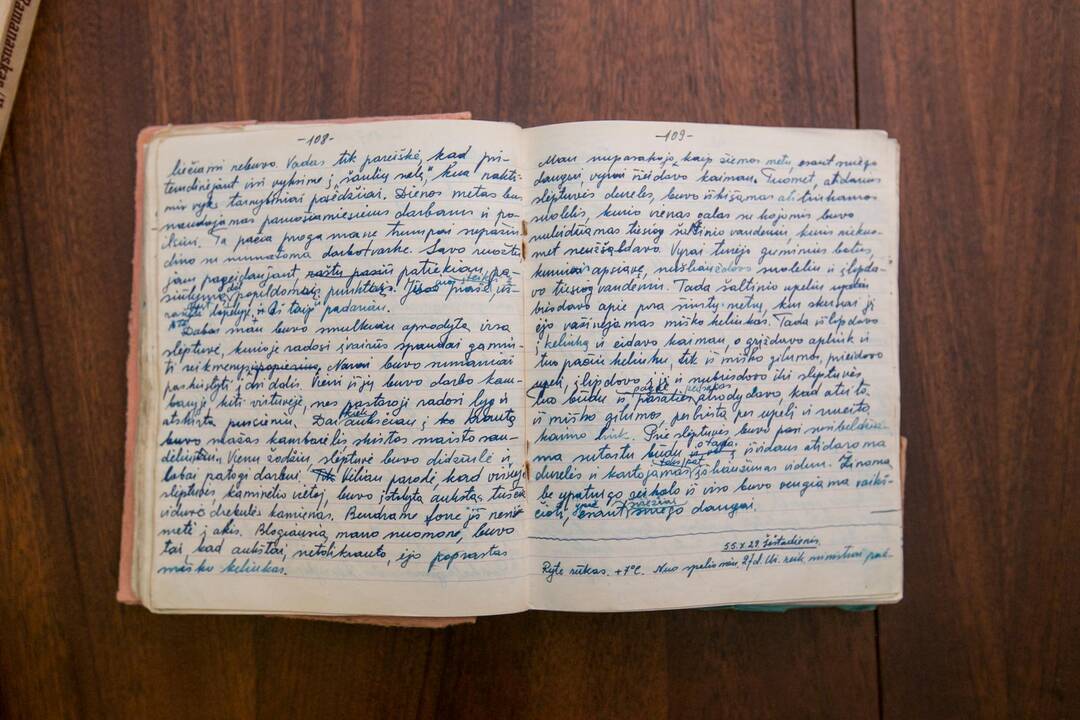 Ramanauskas
-108-
liečiami nebuvo. Vadas tik pareiškė, kad pri-
temdinėjant visi vyksime į „Šaulių salę“, kur naktį
mis vyks tarnybiniai posėdžiai. Dienos metas bus
naudojamas paruošiamiesiems darbams ir po-
ilsiui. Ta pačia proga mane trumpai supažin-
dino su numatoma darbotvarke. Savo ruožtu,
jam pageidaujant patiekiau
papildomais punktais. prašė
lapelyje, ir aš taip padariau.
Dabar man buvo smulkiau aprodyta visa
slėptuvė, kurioje radosi įvairūs spaudai gamin-
ti reikmenys. Narai buvo sumaniai
paskirstyti į dvi dalis. Vieni iš jų buvo darbo kam-
baryje, kiti virtuvėje, nes pastaroji radosi lyg ir
atskirta pusieniu. Dar aukščiau, ko krantą
buvo mažas kambarėlis skirtas maisto san-
dėliui. Vienu žodžiu slėptuvė buvo didžiulė ir
labai patogi darbui. Vėliau parodė, kad viršuje
slėptuvės, kaminėlio vietoj, buvo įstatyta aukštas, tuščia-
viduris drebulės kamienas. Bendrame fone jis nesi-
metė į akis. Blogiausia, mano nuomone, buvo
tai, kad aukštai, netoli kranto, ėjo paprastas
miško keliukas.
-109-
Man nupasakojo, kaip žiemos metu, esant sniego
dangai, vyrai išeidavo kaiman. Tuomet, atidarius
slėptuvės dureles, buvo iškišamas atitinkamas
suolelis, kurio vienas galas su kojomis buvo
nuleidžiamas tiesiog šaltinio vandenin, kuris niekuo-
met neužšaldavo. Vyrai turėjo guminius batus,
kuriuos apsiavę, nusileisdavo suoleliu ir išlipda-
vo tiesiog vandenin. Tada šaltinio upeliu
brisdavo apie porą šimtų metrų, kur skersai jį
ėjo važinėjamas miško keliukas. Tada išlipdavo
į keliuką ir eidavo kaiman, o grįždavo aplink ir
tuo pačiu keliuku, tik iš miško gilumos, prieidavo
upelį, įlipdavo į jį ir nubrisdavo iki slėptuvės
Tuo būdu iš pašalies atrodydavo, kad ateita
iš miško gilumos, perbrista per upelį ir nueita
kaimo link. Prie slėptuvės buvo pasi
ma sutartu būdu ir iš vidaus atidaroma
durelės ir kartojamas įsileidžiamas vidun. Žinoma
be ypatingo reikalo iš viso buvo vengiama vaikš-
čioti, esant sniego dangai.
55.X.29. Šeštadienis.
Ryte rūkas. +7°C. Nuo spalio mėn. 27 d. ministeriai